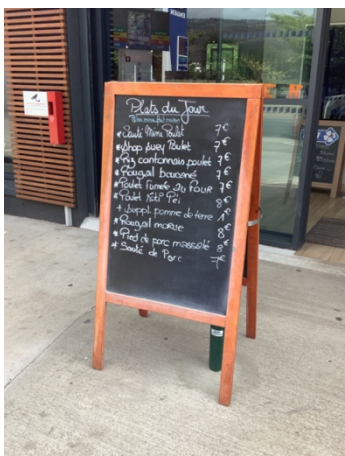 Plats du Jour
* Sauté Mine Poulet 7€
* Shop suey Poulet 7€
* Riz cantonnais poulet 7€
* Rougail boucané 7€
* Poulet Fumée au FOUR 7€
* Poulet Péi 8€
* suppl pomme de terre 1€
* Rougail morue 8€
* Pied de porc massalé 8€
* Sauté de Porc 7€